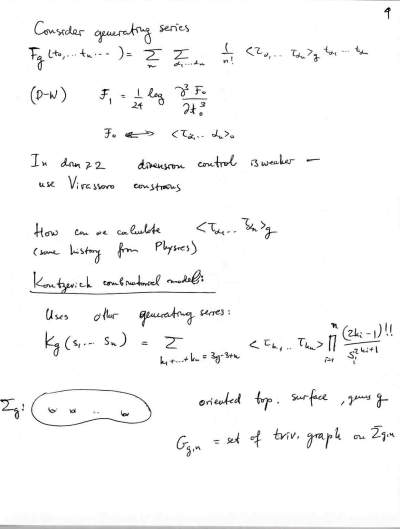 4
Consider generating series
F_g (t_0, ... t_n ...) = Σ_n Σ_{α_1 ... α_n} 1/n! <τ_{α_1} ... τ_{α_n}>_g t_{α_1} ... t_{α_n}
(D-W) F_1 = 1/24 log ∂³F_0 / ∂t_0³
F_0 <~~> <τ_{α_1} ... α_n>_0
In dim ≥ 2 dimension control is weaker –
use Virassoro constrains
How can we calculate <τ_{α_1} ... τ_{α_n}>_g
(some history from Physics)
Kontzevich combinatorical models:
Uses other generating series:
K_g (s_1, ... s_n) = Σ_{k_1 + ... + k_n = 3g-3+n} <τ_{k_1} ... τ_{k_n}> ∏_{i=1}^n (2k_i - 1)!! / s_i^{2k_i+1}
Σ_g: oriented top. surface, genus g
G_{g,n} = set of triv. graph on Σ_{g,n}